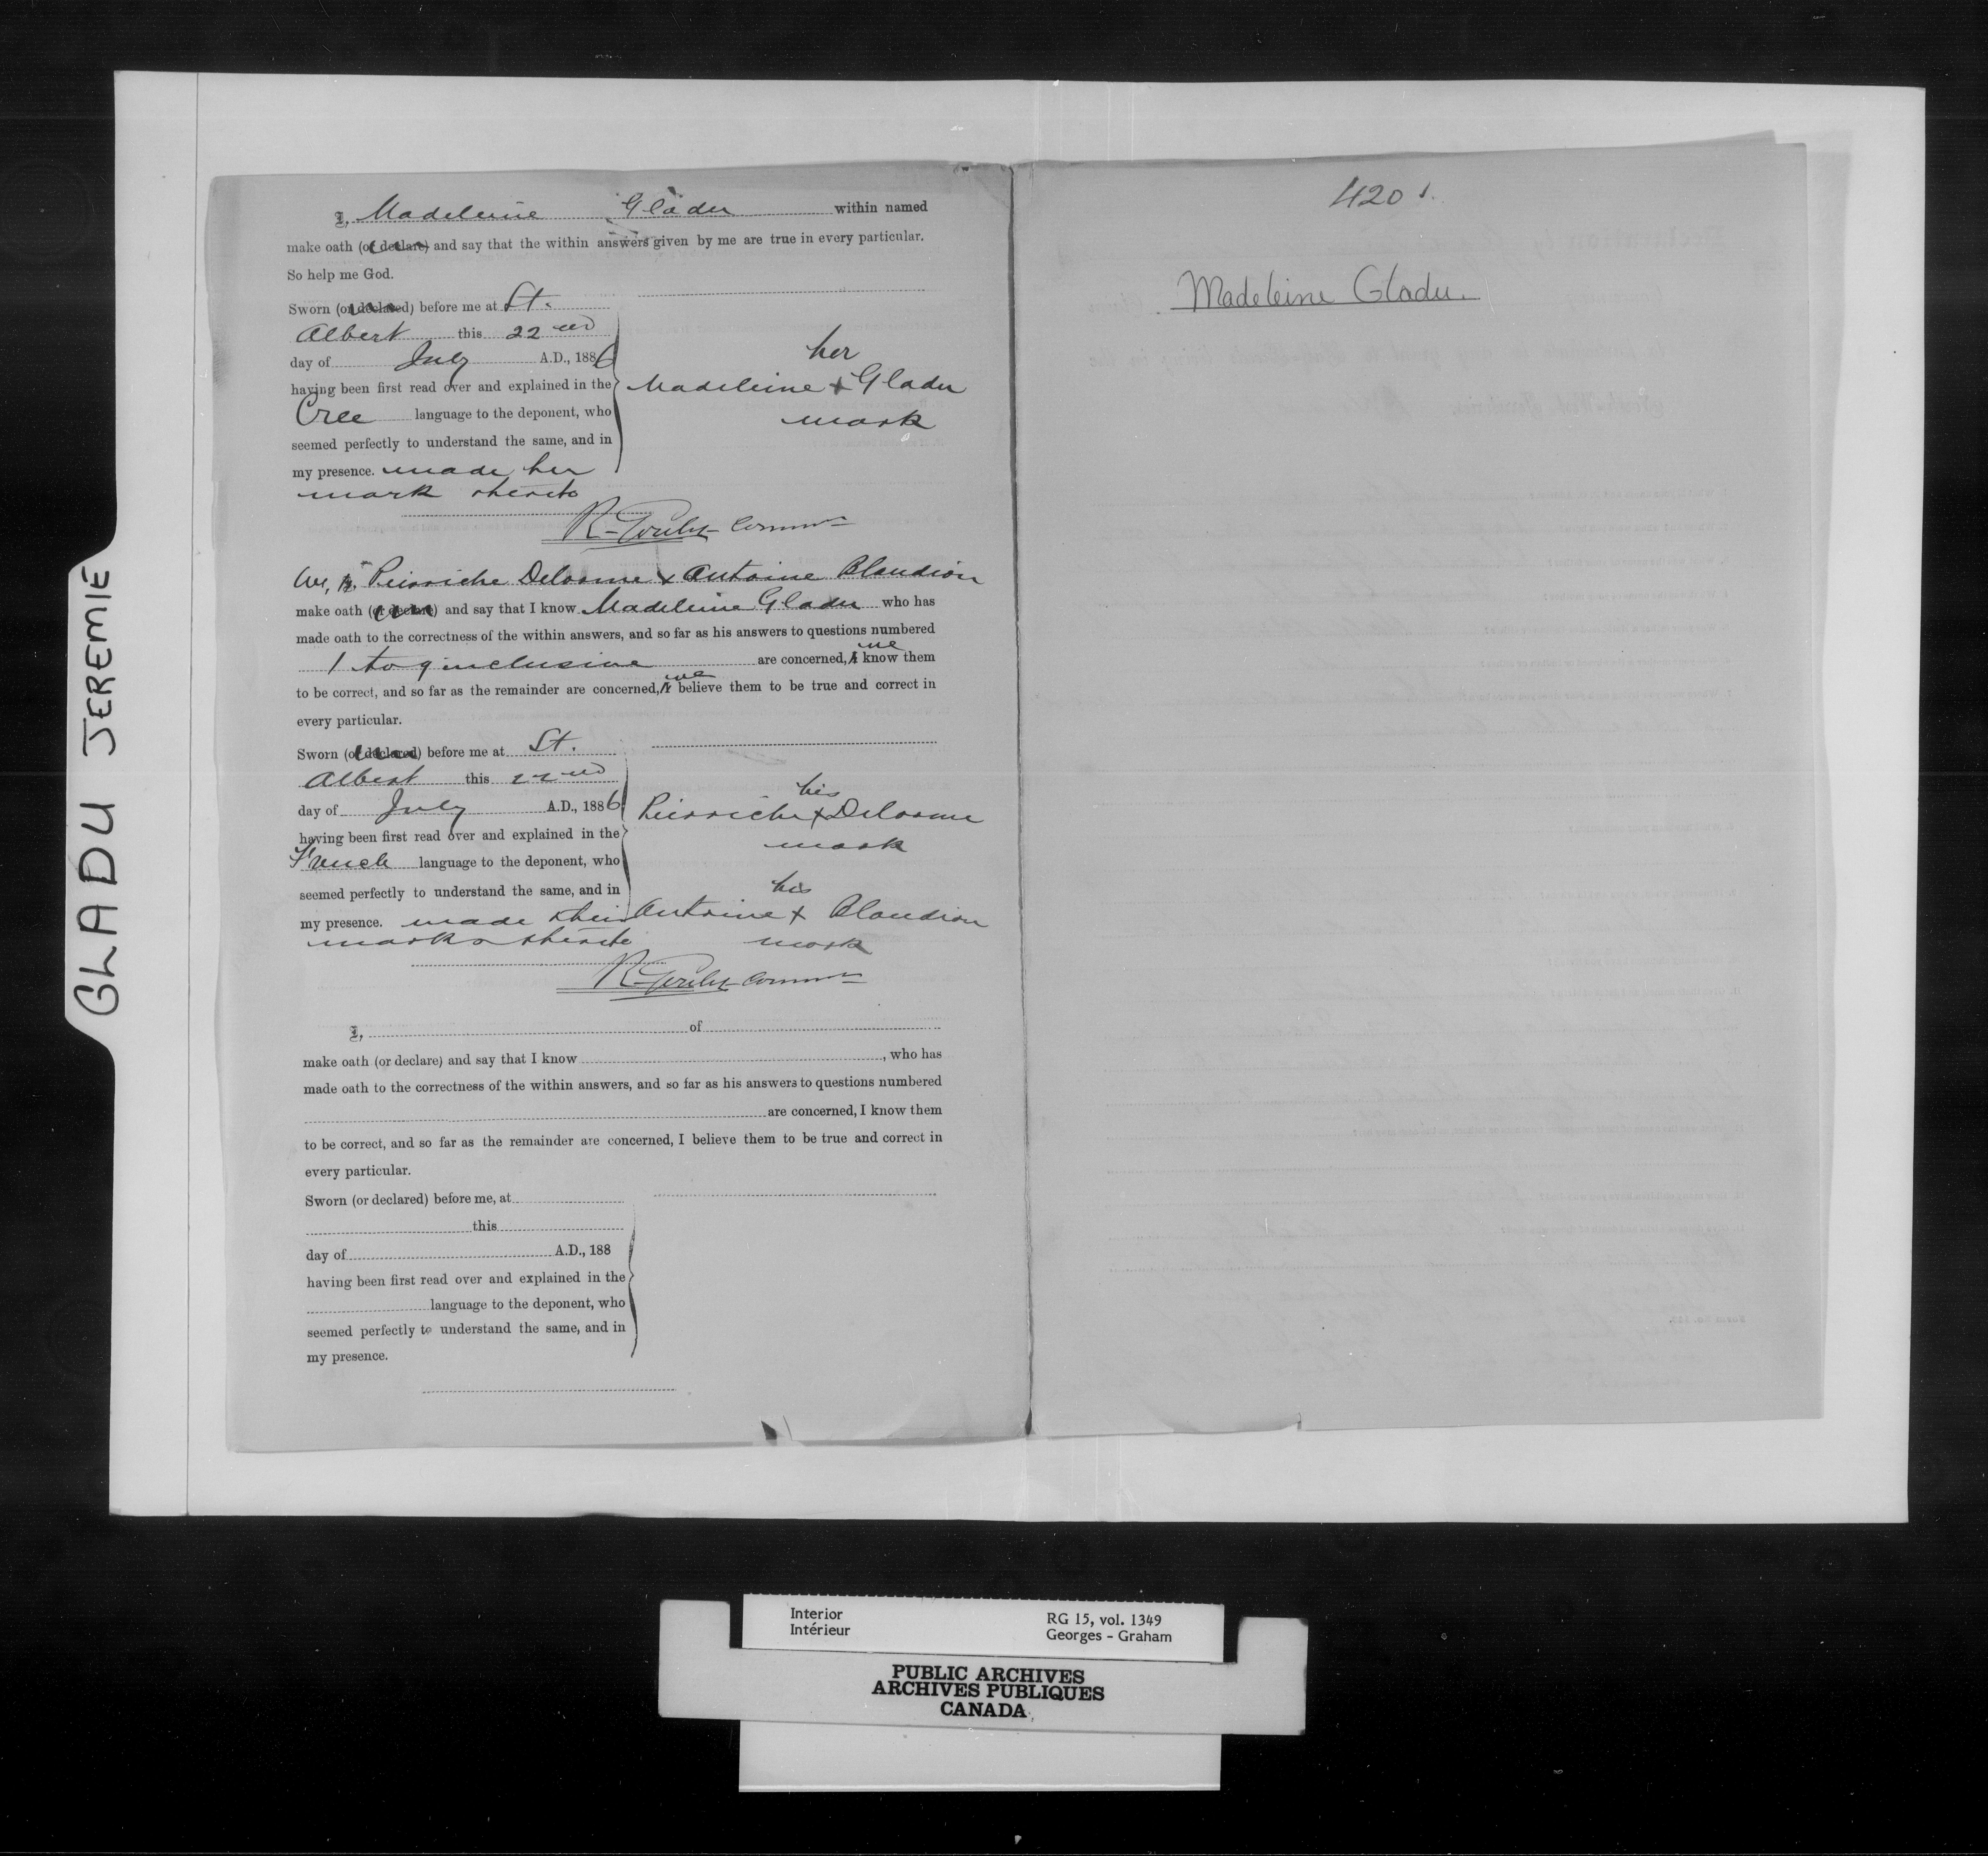 GLADU JEREMIE
I, Madeleine Gladu within named
make oath (or declare) and say that the within answers given by me are true in every particular.
So help me God.
Sworn (or declared) before me at St.
Albert this 22nd
day of July A.D., 1886
having been first read over and explained in the
Cree language to the deponent, who
seemed perfectly to understand the same, and in
my presence. made her
mark thereto
her
Madeleine + Gladu
mark
R. Goulet Commr
We, I, Pierriche Delorme & Antoine Blandion
make oath (or declare) and say that I know Madeleine Gladu who has
made oath to the correctness of the within answers, and so far as his answers to questions numbered
1 to 9 inclusive are concerned, I we know them
to be correct, and so far as the remainder are concerned, I we believe them to be true and correct in
every particular.
Sworn (or declared) before me at St.
Albert this 22nd
day of July A.D., 1886
having been first read over and explained in the
French language to the deponent, who
seemed perfectly to understand the same, and in
my presence. made their
marks thereto
his
Pierriche + Delorme
mark
his
Antoine + Blandion
mark
R. Goulet Commr
I, of
make oath (or declare) and say that I know , who has
made oath to the correctness of the within answers, and so far as his answers to questions numbered
are concerned, I know them
to be correct, and so far as the remainder are concerned, I believe them to be true and correct in
every particular.
Sworn (or declared) before me, at
this
day of A.D., 188
having been first read over and explained in the
language to the deponent, who
seemed perfectly to understand the same, and in
my presence.
420 1.
Madeleine Gladu.
Interior
Intérieur
RG 15, vol. 1349
Georges - Graham
PUBLIC ARCHIVES
ARCHIVES PUBLIQUES
CANADA